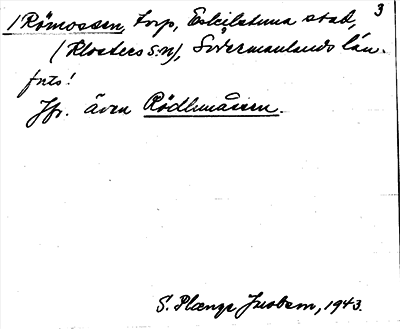 3
/Römossen, torp, Eskilstuna stad,
(Klosters s:n), Södermanlands län.
fnts!
Jfr. även Rödlmåssen.
S. Plænge Jacobson, 1943.